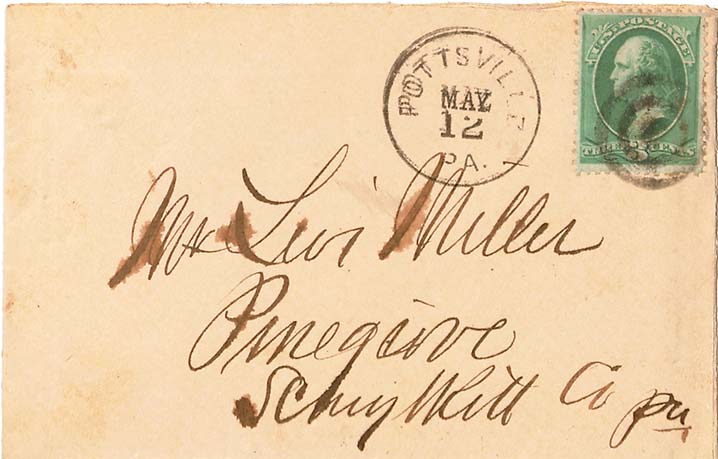 POTTSVILLE
MAY
12
PA.
U.S. POSTAGE
THREE 3 CENTS
Mr Levi Miller
Pinegrove
Schuylkill Co pa